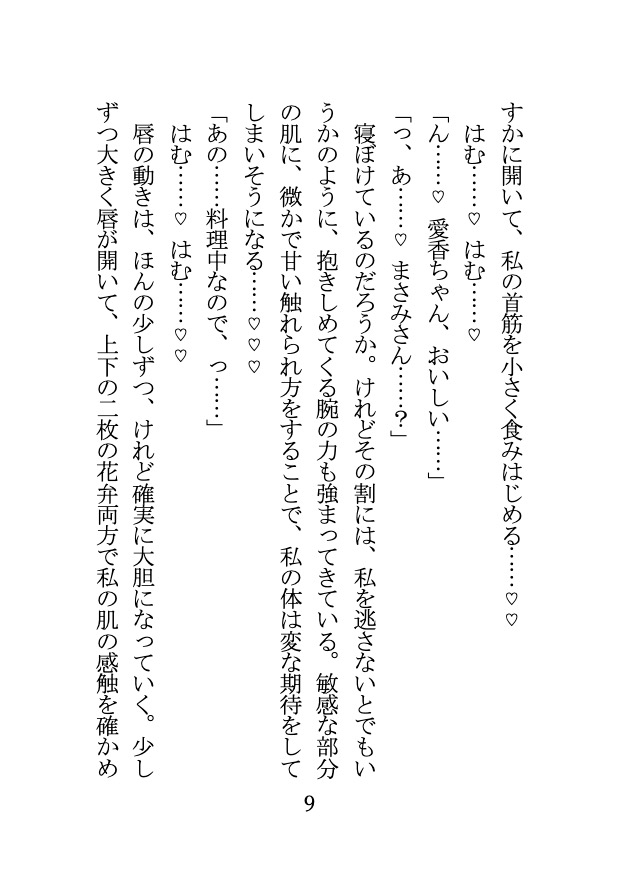 すかに開いて、私の首筋を小さく食みはじめる……♡♡
はむ……♡ はむ……♡
「ん……♡ 愛香ちゃん、おいしい……」
「っ、あ……♡ まさみさん……？」
寝ぼけているのだろうか。けれどその割には、私を逃さないとでもい
うかのように、抱きしめてくる腕の力も強まってきている。敏感な部分
の肌に、微かで甘い触れられ方をすることで、私の体は変な期待をして
しまいそうになる……♡♡♡
「あの……料理中なので、っ……」
はむ……♡ はむ……♡♡
唇の動きは、ほんの少しずつ、けれど確実に大胆になっていく。少し
ずつ大きく唇が開いて、上下の二枚の花弁両方で私の肌の感触を確かめ
9